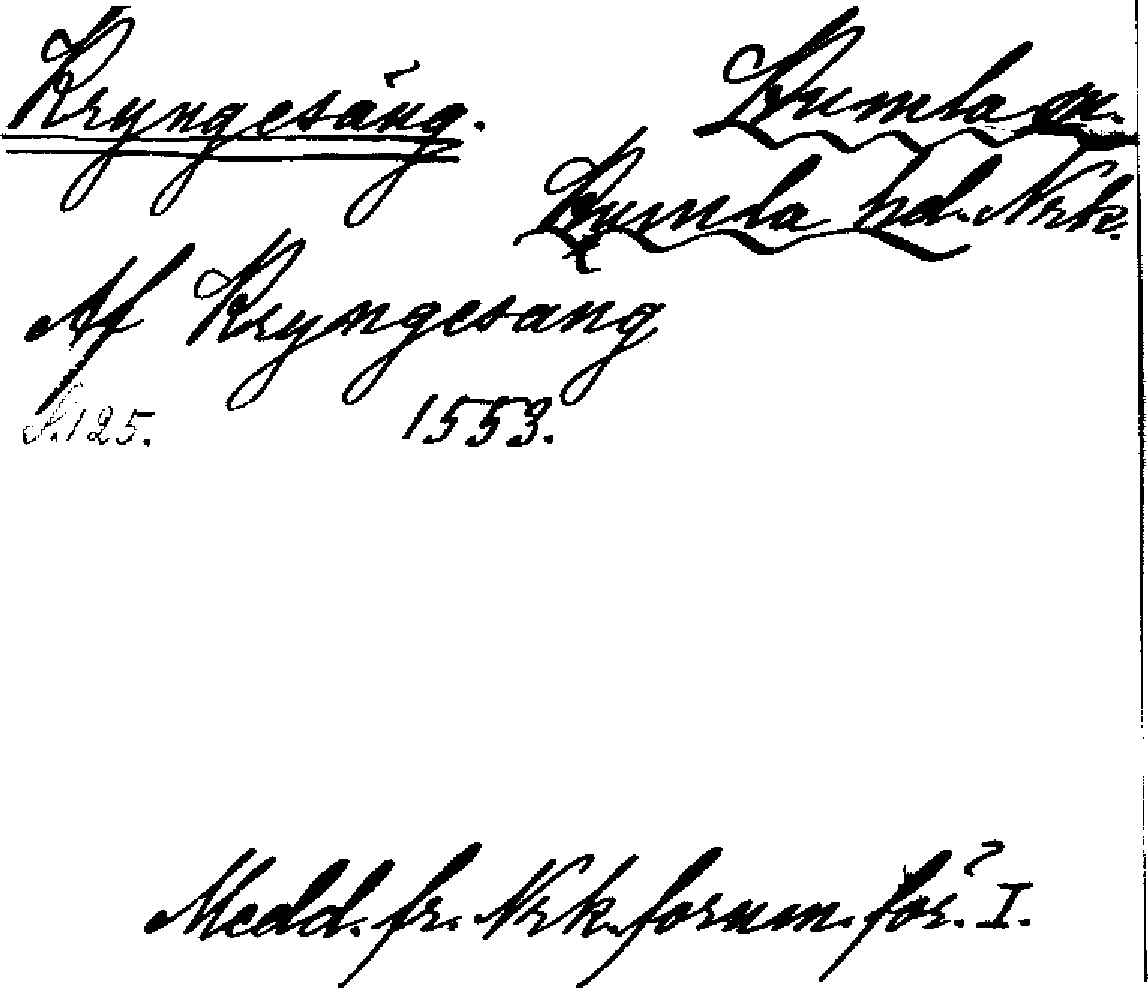 Kryngesäng.
Kumla sn.
Kumla hd. Nrk.
Af Kryngesang
S. 125. 1553.
Medd. fr. Nrk. fornm. för. I.